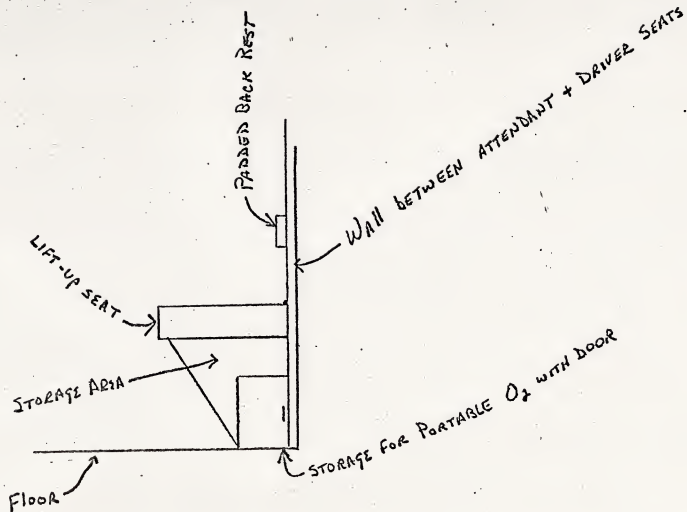 PADDED BACK REST
WALL BETWEEN ATTENDANT + DRIVER SEATS
LIFT-UP SEAT
STORAGE AREA
STORAGE FOR PORTABLE O2 WITH DOOR
FLOOR